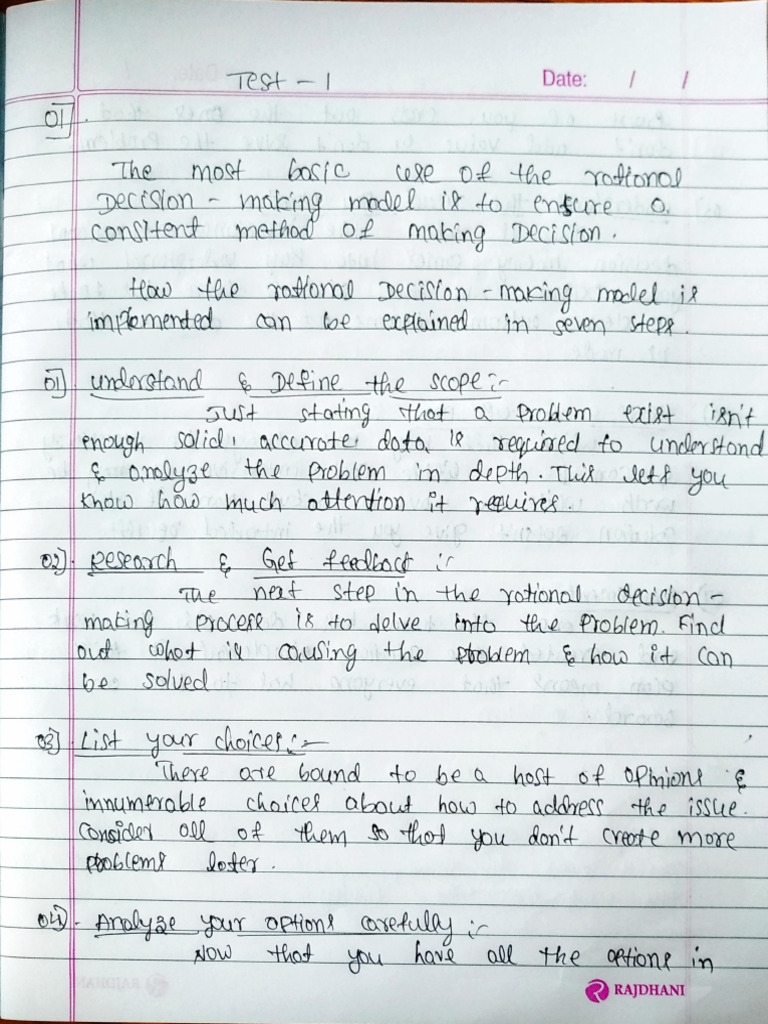 Test - 1
Date: / /
01]
The most basic use of the rational
Decision - making model is to ensure a
consitent method of making Decision.
How the rational Decision - making model is
implemented can be explained in seven steps.
01] understand & Define the scope :-
Just stating that a problem exist isn't
enough solid, accurate, data is required to understand
& analyze the problem in depth. This lets you
know how much attention it requires.
02] Research & Get feedback :-
The next step in the rational decision -
making process is to delve into the problem. Find
out what is causing the problem & how it can
be solved
03] List your choices :-
There are bound to be a host of opinions &
innumerable choices about how to address the issue.
Consider all of them so that you don't create more
problems later.
04] Analyze your options carefully :-
Now that you have all the options in
RAJDHANI